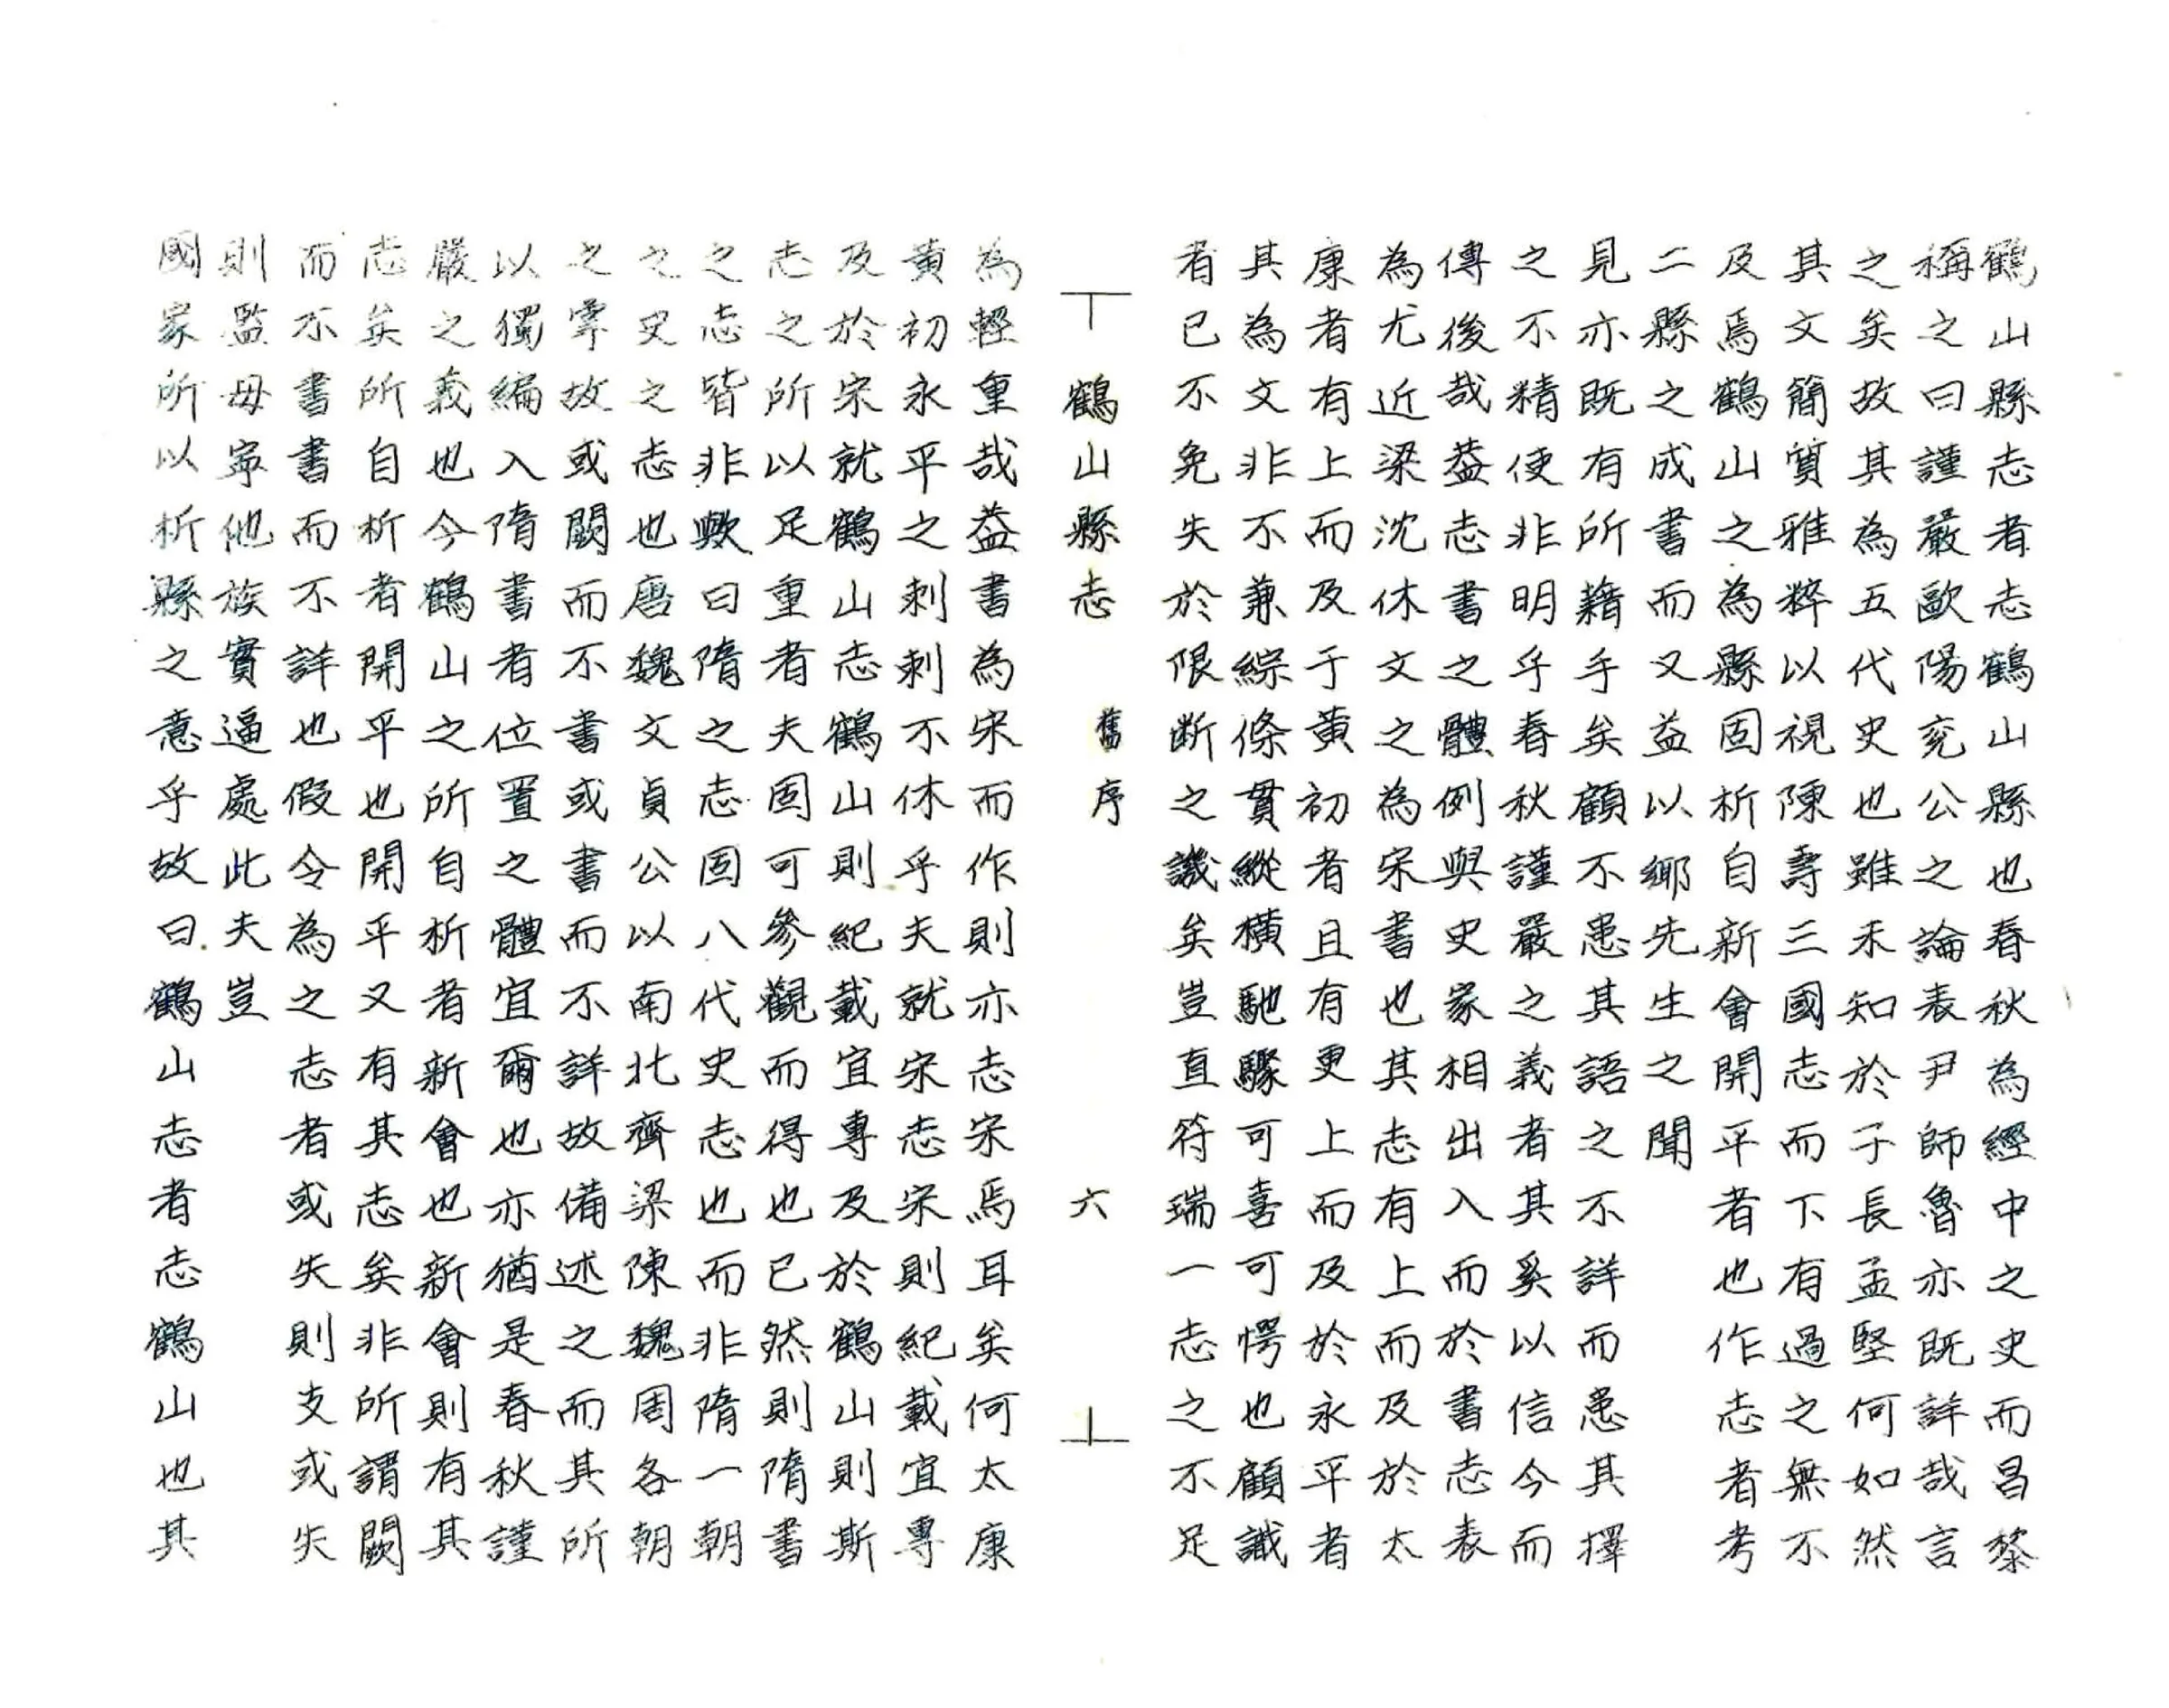 鶴山縣志者志鶴山縣也春秋為經中之史而昌黎
稱之曰謹嚴歐陽兖公之論表尹師魯亦既詳哉言
之矣故其為五代史也雖未知於子長孟堅何如然
其文簡質雅粹以視陳壽三國志而下有過之無不
及焉鶴山之為縣固析自新會開平者也作志者考
二縣之成書而又益以鄉先生之聞
見亦既有所籍手矣顧不患其語之不詳而患其擇
之不精使非明乎春秋謹嚴之義者其奚以信今而
傳後哉葢志書之體例與史家相出入而於書志表
為尤近梁沈休文之為宋書也其志有上而及於太
康者有上而及于黃初者且有更上而及於永平者
其為文非不兼綜條貫縱橫馳驟可喜可愕也顧識
者已不免失於限斷之譏矣豈直符瑞一志之不足
鶴山縣志 舊序 六
為輕重哉葢書為宋而作則亦志宋焉耳矣何太康
黃初永平之刺刺不休乎夫就宋志宋則紀載宜專
及於宋就鶴山志鶴山則紀載宜專及於鶴山則斯
志之所以足重者夫固可參觀而得也已然則隋書
之志皆非歟曰隋之志固八代史志也而非隋一朝
之史之志也唐魏文貞公以南北齊梁陳魏周各朝
之事故或闕而不書或書而不詳故備述之而其所
以獨編入隋書者位置之體宜爾也亦猶是春秋謹
嚴之義也今鶴山之所自析者新會也新會則有其
志矣所自析者開平也開平又有其志矣非所謂闕
而不書書而不詳也假令為之志者或失則支或失
則濫毋寧他族實逼處此夫豈
國家所以析縣之意乎故曰鶴山志者志鶴山也其